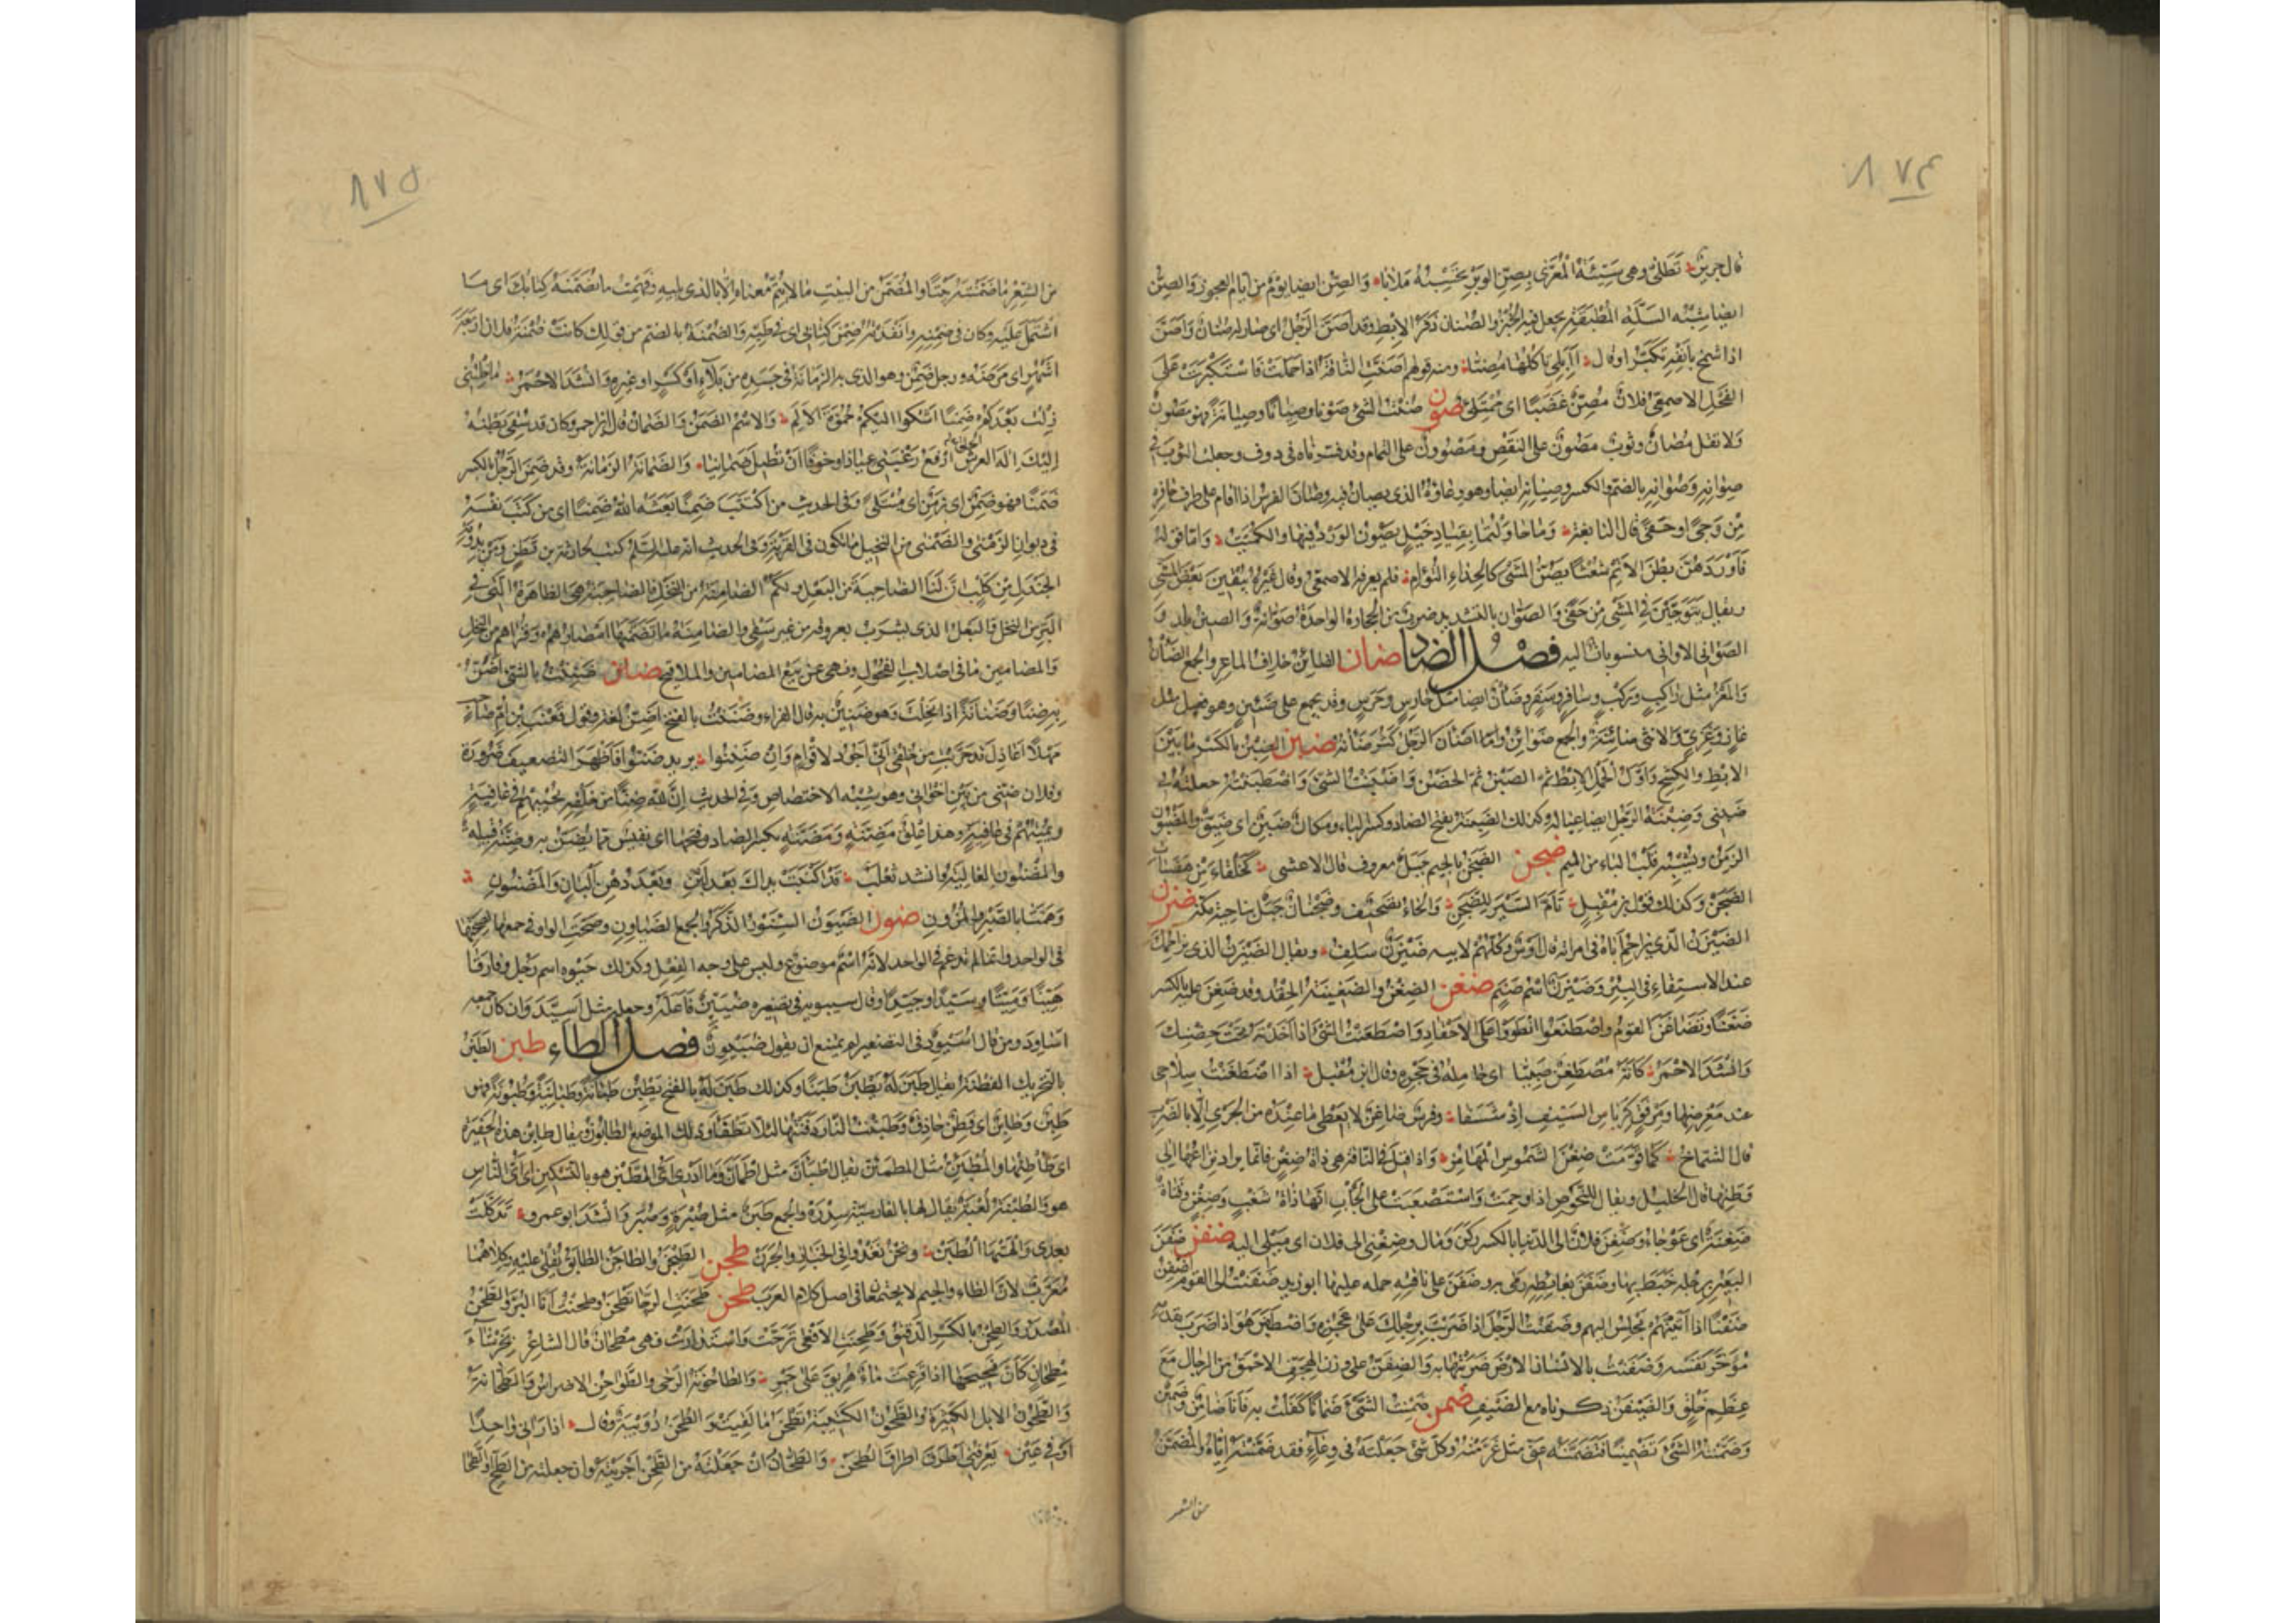 ٨٧٤
قال جرير تَطَلَّى وهى سَيِّئَةُ المُعَرَّى بِصِنِّ الوَبْرِ تَحْسِبُهُ مَلَابَا والصِنُّ ايضا يوم من ايام العجوز والصِنُّ
ايضا شبه السلّة المُطْبَقَة يجعل فيه الخبز والصُنان ذَفَرُ الابط وقد اَصَنَّ الرَجُلُ اى صار له صُنان وَاَصَنَّ
اذا شمخ بانفه تكبّرا وقال أإبلى تأكلها مُصِنّا ومنه قولهم اَصَنَّتِ الناقة اذا حملت فاستكبرت على
الفحل الاصمعى فلان مُصِنٌّ غضبا اى ممتلئ صون صُنْتُ الشئ صَوْنا وصِيانا وصِيانة فهو مصون
ولا تقل مُصان وثوب مَصُون على النقص ومَصْوُون على التمام وقد فسّرناه فى دوف وجعلت الثوب فى
صِوانه وصُوانه بالضم والكسر وصِيانه ايضا وهو وعاؤه الذى يصان فيه وصان الفرس اذا قام على طرف حافره
من وَجًى او حَفًى قال النابغة وما حاولتما بقياد خيل يصون الورد فيها والكميت واما قوله
فَأَوْرَدَهُنَّ بطن الاتم شُعْثا يَصُنَّ المشى كالحِدَاءِ التُؤَامِ فلم يعرفه الاصمعى وقال غيره يُبْقين بعض المشى
ويقال يتوجّين فى المشى من حفى والصَوّان بالتشديد ضرب من الحجارة الواحدة صَوّانة والصين بلد و
الصوانى الاوانى منسوبات اليه فصل الضاد ضان الضائن خلاف الماعز والجمع الضأن
والمعز مثل راكب وركب وسافر وسفر وضَأَن ايضا مثل حارس وحرس وقد يجمع على ضَئِين وهو فعيل مثل
غاز وغَزِىّ والانثى ضائنة والجمع ضوائن واضأن الرجل كثر ضأنه ضبن الضِبن بالكسر ما بين
الابط والكشح واوّل الحمل الابط ثم الضبن ثم الحضن واضبنت الشئ واضطبنته جعلته فى
ضبنى وضبنة الرجل ايضا عياله وكذلك الضَبِنة بفتح الضاد وكسر الباء ومكان ضَبْن اى ضيّق والمضبون
الزمن ويشبه قلب الباء من الميم ضجن الضجن بالجيم جبل معروف قال الاعشى كخلقاء من هضبات
الضجن وكذلك قول ابن مقبل تؤم السير للضجن والحاء تصحيف وضجنان جبل بناحية مكة ضزن
الضيزن الذى يزاحم اباه فى امراته قال اوس وكلهم لابيه ضيزن سلف ويقال الضيزن الذى يزاحمك
عند الاستقاء فى البئر وضيزن اسم صنم ضغن الضغن والضغينة الحقد وقد ضغن عليه بالكسر
ضغنا وتضاغن القوم واضطغنوا انطووا على الاحقاد واضطغنت الشئ اذا اخذته تحت حضنك
وانشد الاحمر كانه مضطغن صبيّا اى حامله فى حجره وقال ابن مقبل اذا اضطغنت سلاحى
عند مغرضها ومرفق كرئاس السيف اذ شسفا وفرس ضاغن لا يعطى ما عنده من الجرى الا بالضرب
قال الشماخ كما قوّمت ضغن الشموس المهامز واذا قيل فى الناقة هى ذاة ضغن فانما يراد نزاعها الى
وطنها قال الخليل ويقال للنحوص اذا وحمت واستصعبت على الجأب انها ذاة شغب وضغن وقناة
ضغنة اى عوجاء وضغن فلان الى الدنيا بالكسر ركن ومال وضغنى الى فلان اى ميلى اليه ضفن ضفن
البعير برجله خبط بها وضفن بغائطه رمى به وضفن على ناقته حمله عليها ابو زيد ضفنت الى القوم اضفن
ضفنا اذا اتيتهم تجلس اليهم وضفنت الرجل اذا ضربت برجلك على عجزه واضطفن هو اذا ضرب بقدمه
مؤخر نفسه وضفنت بالانسان الارض ضربتها به والضفن على وزن الهجف الاحمق من الرجال مع
عظم خلق والضيفن ذكرناه مع الضيف ضمن ضمنت الشئ ضمانا كفلت به فانا ضامن وضمين
وضمنته الشئ تضمينا فتضمنه عنى مثل غرّمته وكل شئ جعلته فى وعاء فقد ضمنته اياه والمضمن
من الشعر
٨٧٥
من الشعر ما ضمنته بيتا والمضمن من البيت ما لا يتم معناه الا بالذى يليه وفهمت ما تضمنه كتابك اى ما
اشتمل عليه وكان فى ضمنه وانفذته ضمن كتابى اى فى طيّه والضمنة بالضم من قولك كانت ضمنة فلان اربعة
اشهر اى مرضه ورجل ضمن وهو الذى به الزمانة فى جسده من بلاء او كسر او غيره وانشد الاحمر ما خلتنى
زلت بعدكم ضمنا اشكوا اليكم حموّة الالم والاسم الضمن والضمان قال ابن احمر وكان قد سقى بطنه
اليك اله العرش ارفع رغبتى عياذا وخوفا ان تطيل ضمانيا والضمانة الزمانة وقد ضمن الرجل بالكسر
ضمنا فهو ضمن اى زمن اى مبتلى وفى الحديث من اكتتب ضمنا بعثه الله ضمنا اى من كتب نفسه
فى ديوان الزمنى والضمنى من النخيل ما يكون فى القرية وفى الحديث انه عليه السلم كتب لحارثة بن قطن ومن بدومة
الجندل من كلب ان لنا الضاحية من البعل ولكم الضامنة من النخل فالضاحية هى الظاهرة التى فى
البر من النخل فالبعل الذى يشرب بعروقه من غير سقى والضامنة ما تضمنها امصارهم وقراهم من النخل
والمضامين ما فى اصلاب الفحول ونهى عن بيع المضامين والملاقيح ضنن ضننت بالشئ اضن
به ضنا وضنانة اذا بخلت وهو ضنين به قال الفراء وضننت بالفتح اضن لغة وقول قعنب بن ام صاحب
مهلا اعاذل قد جربت من خلقى انى اجود لاقوام وان ضننوا يريد ضنوا فاظهر التضعيف ضرورة
وفلان ضنى من بين اخوانى وهو شبه الاختصاص وفى الحديث ان لله ضنا من خلقه يحييهم فى عافية
ويميتهم فى عافية وهذا علق مضنة ومضنة بكسر الضاد وفتحها اى نفيس مما يضن به وضنة قبيلة
والمضنون الغالية وانشد ثعلب قد اكنبت يداك بعد لين وبعد دهن البان والمضنون
وهمتا بالصبر والمرون ضون الضيون السنور الذكر والجمع الضياون وصحت الواو فى جمعها لصحتها
فى الواحد وانما لم تدغم فى الواحد لانه اسم موضوع وليس على وجه الفعل وكذلك حيوه اسم رجل وفارقا
هينا وميتا وسيدا وجيدا وقال سيبويه فى تصغيره ضيين فاعله وجعله مثل اسيد وان كان جمعه
اساود ومن قال اسيود فى التصغير لم يمتنع ان يقول ضييون فصل الطاء طبن الطبن
بالتحريك الفطنة يقال طبن له يطبن طبنا وكذلك طبن له بالفتح يطبن طبانة وطبانية وطبونة فهو
طبن وطابن اى فطن حاذق وطبنت النار دفنتها لئلا تطفأ وذلك الموضع الطابون ويقال طابن هذه الحفيرة
اى طأطئها والمطبئن مثل المطمئن يقال اطبأن مثل اطمأن وما ادرى اى الطبن هو بالتسكين اى اى الناس
هو والطبنة لعبة يقال لها بالفارسية سدرة والجمع طبن مثل صبرة وصبر وانشد ابو عمرو تدكلت
بعدى والهتها الطبن ونحن نغدوا فى الخبار والجرن طجن الطيجن والطاجن الطابق يقلى عليه وكلاهما
معرب لان الطاء والجيم لا يجتمعان فى اصل كلام العرب طحن طحنت الرحا تطحن وطحنت انا البر والطحن
المصدر والطحن بالكسر الدقيق وطحنت الافعى ترحت واستدارت فهى مطحان قال الشاعر بخرشاء
مطحان كان فحيحها اذا فزعت ماء هريق على جمر والطاحونة الرحى والطواحن الاضراس والطحانة
والطحون الابل الكثيرة والطحون الكتيبة تطحن ما لقيت والطحن دويبة وقال اذا رانى واحدا
او فى عين يعرفنى اطرق اطراق الطحن والطحان ان جعلته من الطحن اجريته وان جعلته من الطح او الطحا